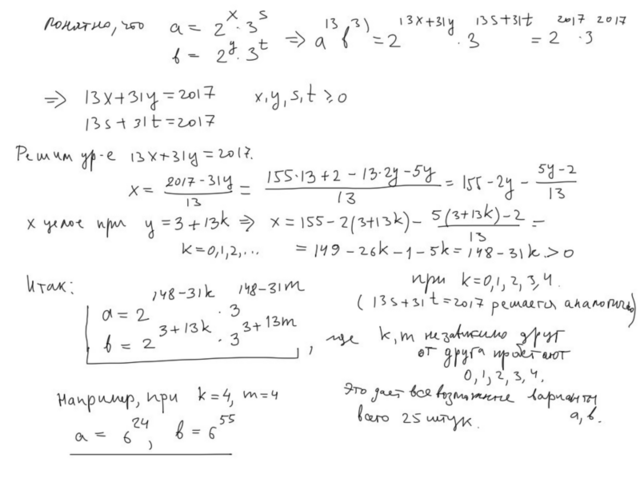 Понятно, что a = 2^x · 3^s
b = 2^y · 3^t ⇒ a^13 b^31 = 2^(13x+31y) · 3^(13s+31t) = 2^2017 · 3^2017
⇒ 13x+31y = 2017
13s+31t = 2017
x, y, s, t ≥ 0
Решим ур-е 13x+31y = 2017.
x = (2017-31y)/13 = (155·13+2-13·2y-5y)/13 = 155-2y - (5y-2)/13
x целое при y = 3+13k ⇒ x = 155-2(3+13k) - (5(3+13k)-2)/13 =
k=0,1,2,... = 149-26k-1-5k = 148-31k > 0
при k=0,1,2,3,4.
(13s+31t=2017 решается аналогично)
Итак:
a = 2^(148-31k) · 3^(148-31m)
b = 2^(3+13k) · 3^(3+13m), где k, m независимо друг
от друга пробегают
0,1,2,3,4.
Это дает все возможные варианты
a, b.
всего 25 штук.
Например, при k=4, m=4
a = 6^24, b = 6^55